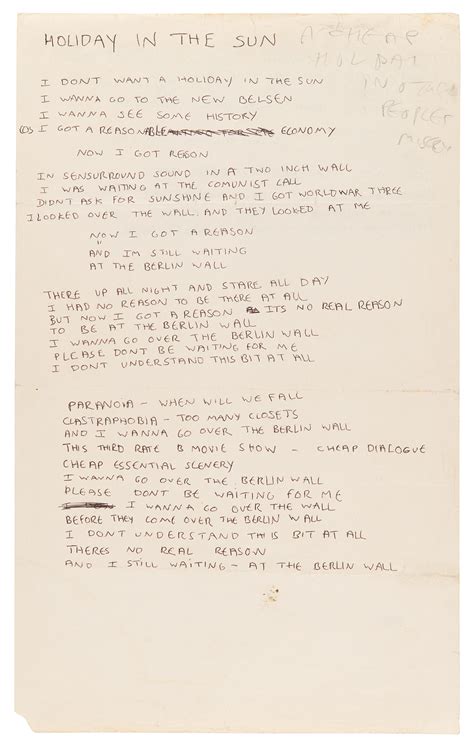 HOLIDAY IN THE SUN
A CHEAP
HOLIDAY
IN OTHER
PEOPLES
MISERY
I DONT WANT A HOLIDAY IN THE SUN
I WANNA GO TO THE NEW BELSEN
I WANNA SEE SOME HISTORY
COS I GOT A REASONABLE ECONOMY
NOW I GOT REASON
IN SENSURROUND SOUND IN A TWO INCH WALL
I WAS WAITING AT THE COMUNIST CALL
DIDNT ASK FOR SUNSHINE AND I GOT WORLDWAR THREE
I LOOKED OVER THE WALL. AND THEY LOOKED AT ME
NOW I GOT A REASON
AND IM STILL WAITING
AT THE BERLIN WALL
THERE UP ALL NIGHT AND STARE ALL DAY
I HAD NO REASON TO BE THERE AT ALL
BUT NOW I GOT A REASON ITS NO REAL REASON
TO BE AT THE BERLIN WALL
I WANNA GO OVER THE BERLIN WALL
PLEASE DONT BE WAITING FOR ME
I DONT UNDERSTAND THIS BIT AT ALL
PARANOIA - WHEN WILL WE FALL
CLASTRAPHOBIA - TOO MANY CLOSETS
AND I WANNA GO OVER THE BERLIN WALL
THIS THIRD RATE B MOVIE SHOW - CHEAP DIALOGUE
CHEAP ESSENTIAL SCENERY
I WANNA GO OVER THE BERLIN WALL
PLEASE DONT BE WAITING FOR ME
I WANNA GO OVER THE WALL
BEFORE THEY COME OVER THE BERLIN WALL
I DONT UNDERSTAND THIS BIT AT ALL
THERES NO REAL REASON
AND I STILL WAITING - AT THE BERLIN WALL